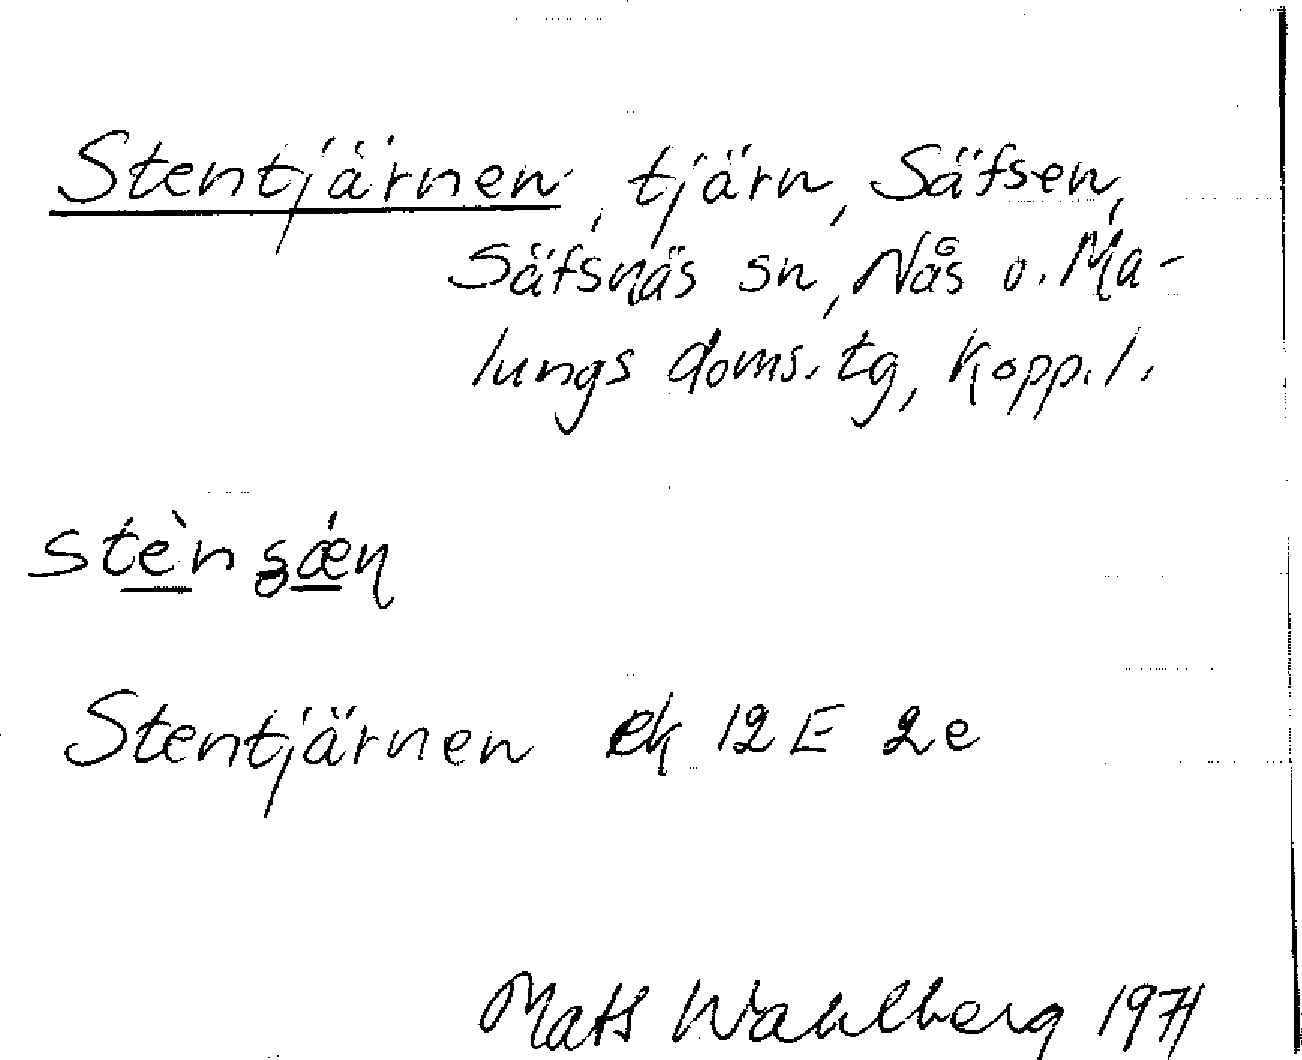 Stentjärnen, tjärn, Säfsen,
Säfsnäs sn, Nås o. Ma-
lungs doms. tg, Kopp. l.
Stentjärnen ek 12 E 2e
Mats Wahlberg